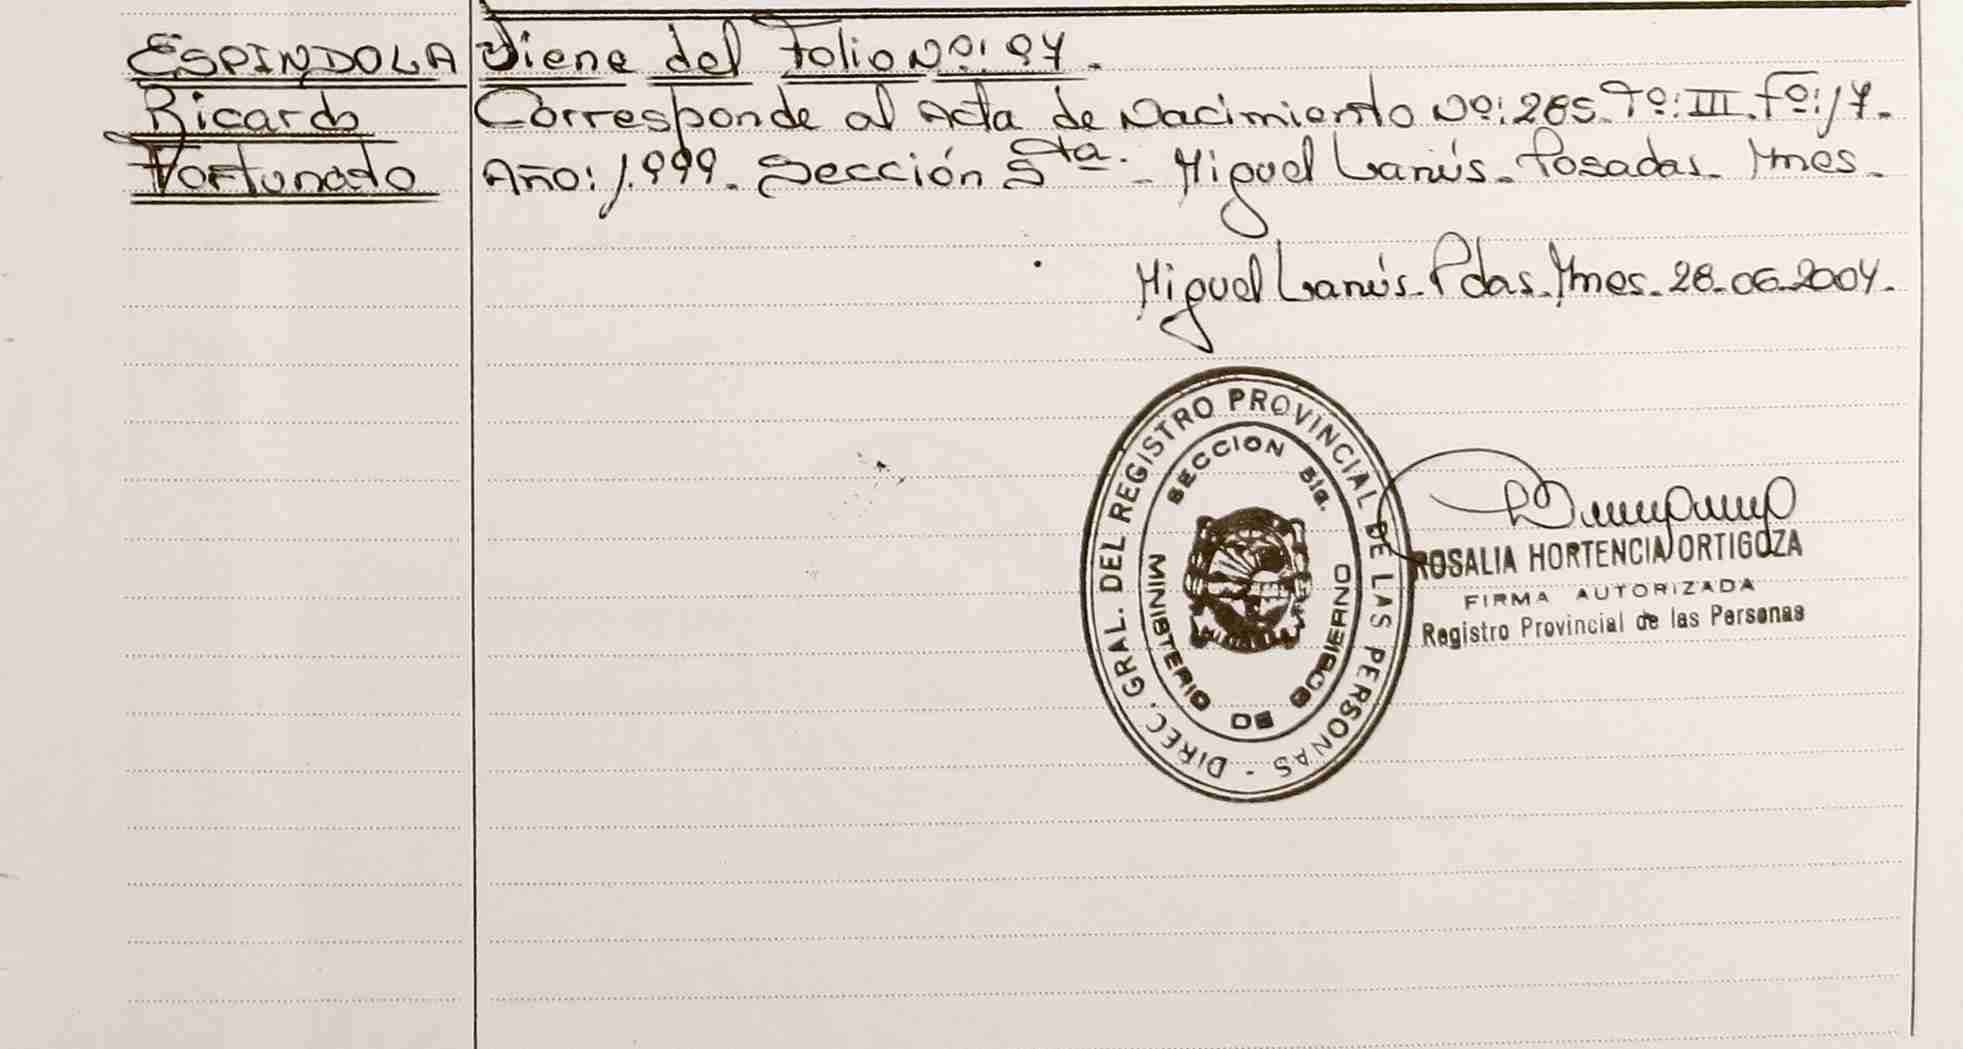 ESPINDOLA
Ricardo
Fortunato
Viene del Folio Nº: 97.
Corresponde al Acta de Nacimiento Nº: 285. Tº: III. Fº: 17.
Año: 1.999. Sección 5ta. - Miguel Lanús. Posadas. Mnes.
Miguel Lanús. Pdas. Mnes. 28.06.2004.
DIREC. GRAL. DEL REGISTRO PROVINCIAL DE LAS PERSONAS -
SECCION 5ta.
MINISTERIO DE GOBIERNO
ROSALIA HORTENCIA ORTIGOZA
FIRMA AUTORIZADA
Registro Provincial de las Personas